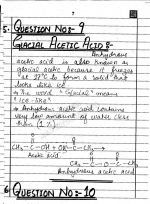 5. QUESTION No:- 9
GLACIAL ACETIC ACID :-
Anhydrous
acetic acid is also known as
glacial acetic because it freezes
at 17°C to form a solid and
looks like ice
→ The word "Glacial" means
"ice-like"
→ Anhydrous acetic acid contains
very low amount of water (less
than 1%)
O O
CH₃-C-OH + OH-C-CH₃ →
Acetic acid O O
CH₃-C-O-C-CH₃
Anhydrous acetic acid
6. QUESTION No:- 10